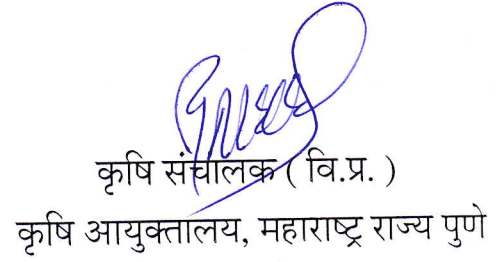 कृषि संचालक ( वि.प्र. )
कृषि आयुक्तालय, महाराष्ट्र राज्य पुणे